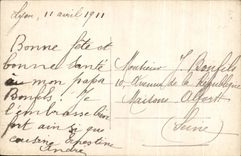 Lyon, 11 avril 1911
Bonne fête et
bonne santé
mon papa
Bonfils. Je
t'embrasse bien
fort ainsi que
cousine Ernestine
André
Monsieur J. Bonfils
10, Avenue de la République
Maisons Alfort
(Seine)